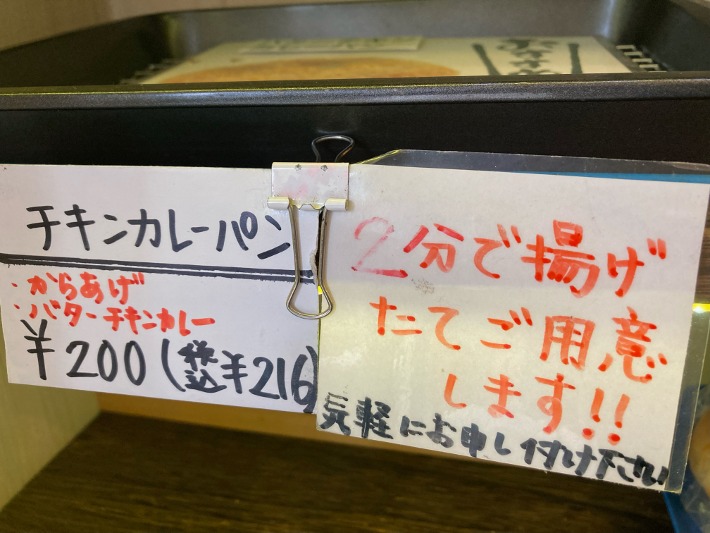 チキンカレーパン
・からあげ
・バターチキンカレー
¥200(税込¥216)
2分で揚げ
たてご用意
します!!
気軽にお申し付け下さい